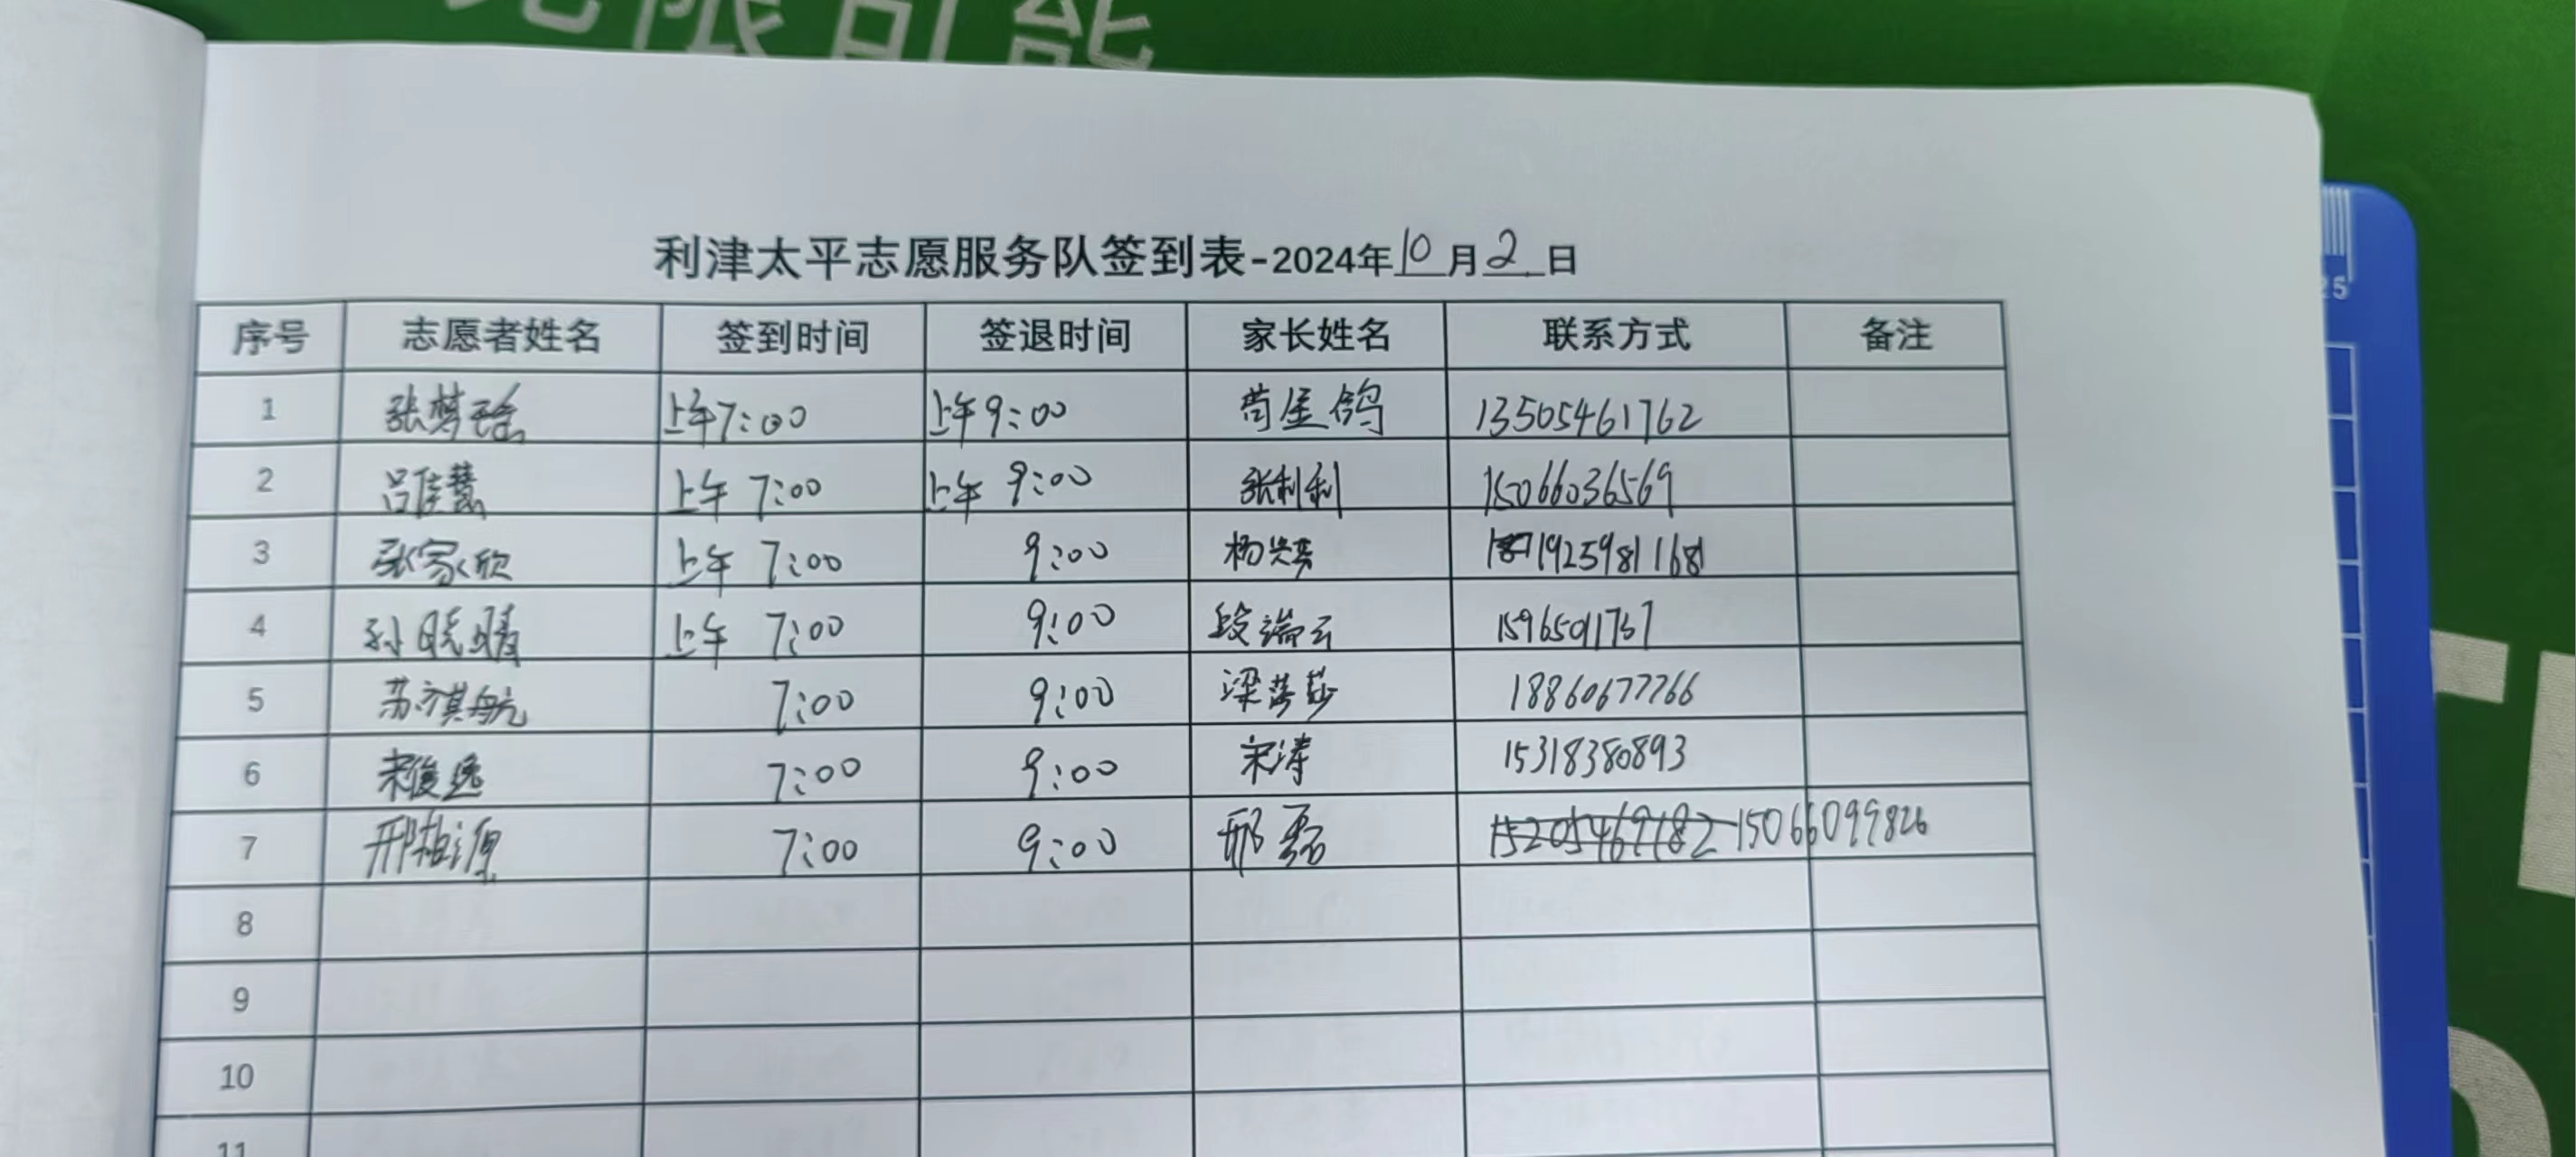 无限可能
利津太平志愿服务队签到表-2024年10月2日
序号 志愿者姓名 签到时间 签退时间 家长姓名 联系方式 备注
1 张梦瑶 上午7:00 上午9:00 苟金鸽 13505461762
2 吕佳慧 上午 7:00 上午 9:00 张利利 15066036569
3 张家欣 上午 7:00 9:00 杨
4 孙晓晴 上午 7:00 9:00 段端云 15965011737
5 苏祺航 7:00 9:00 梁莎莎 18860677266
6 宋俊逸 7:00 9:00 宋涛 15318380893
7 邢柏源 7:00 9:00 邢磊 15205469182 15066099826
8
9
10
11